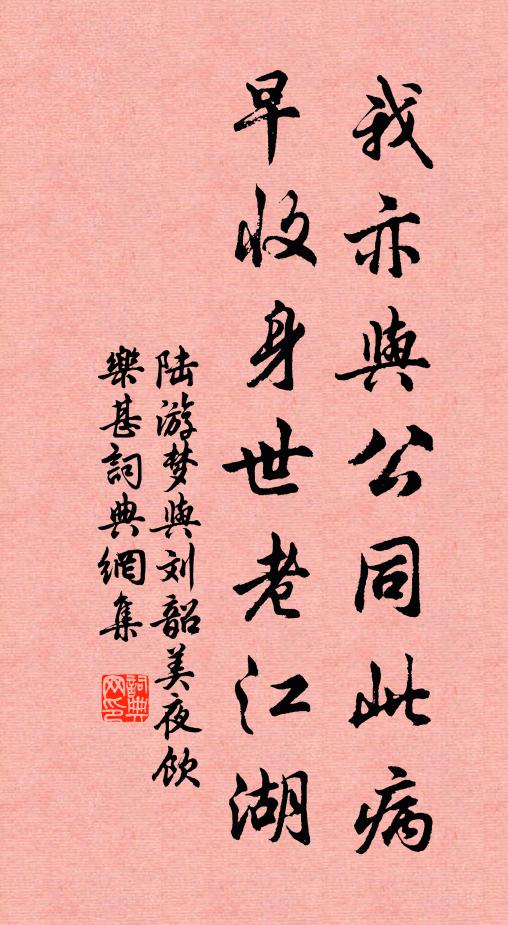 我亦與公同此病
早收身世老江湖
陆游梦與刘韶美夜饮
樂甚詞典網集
詞典
网印